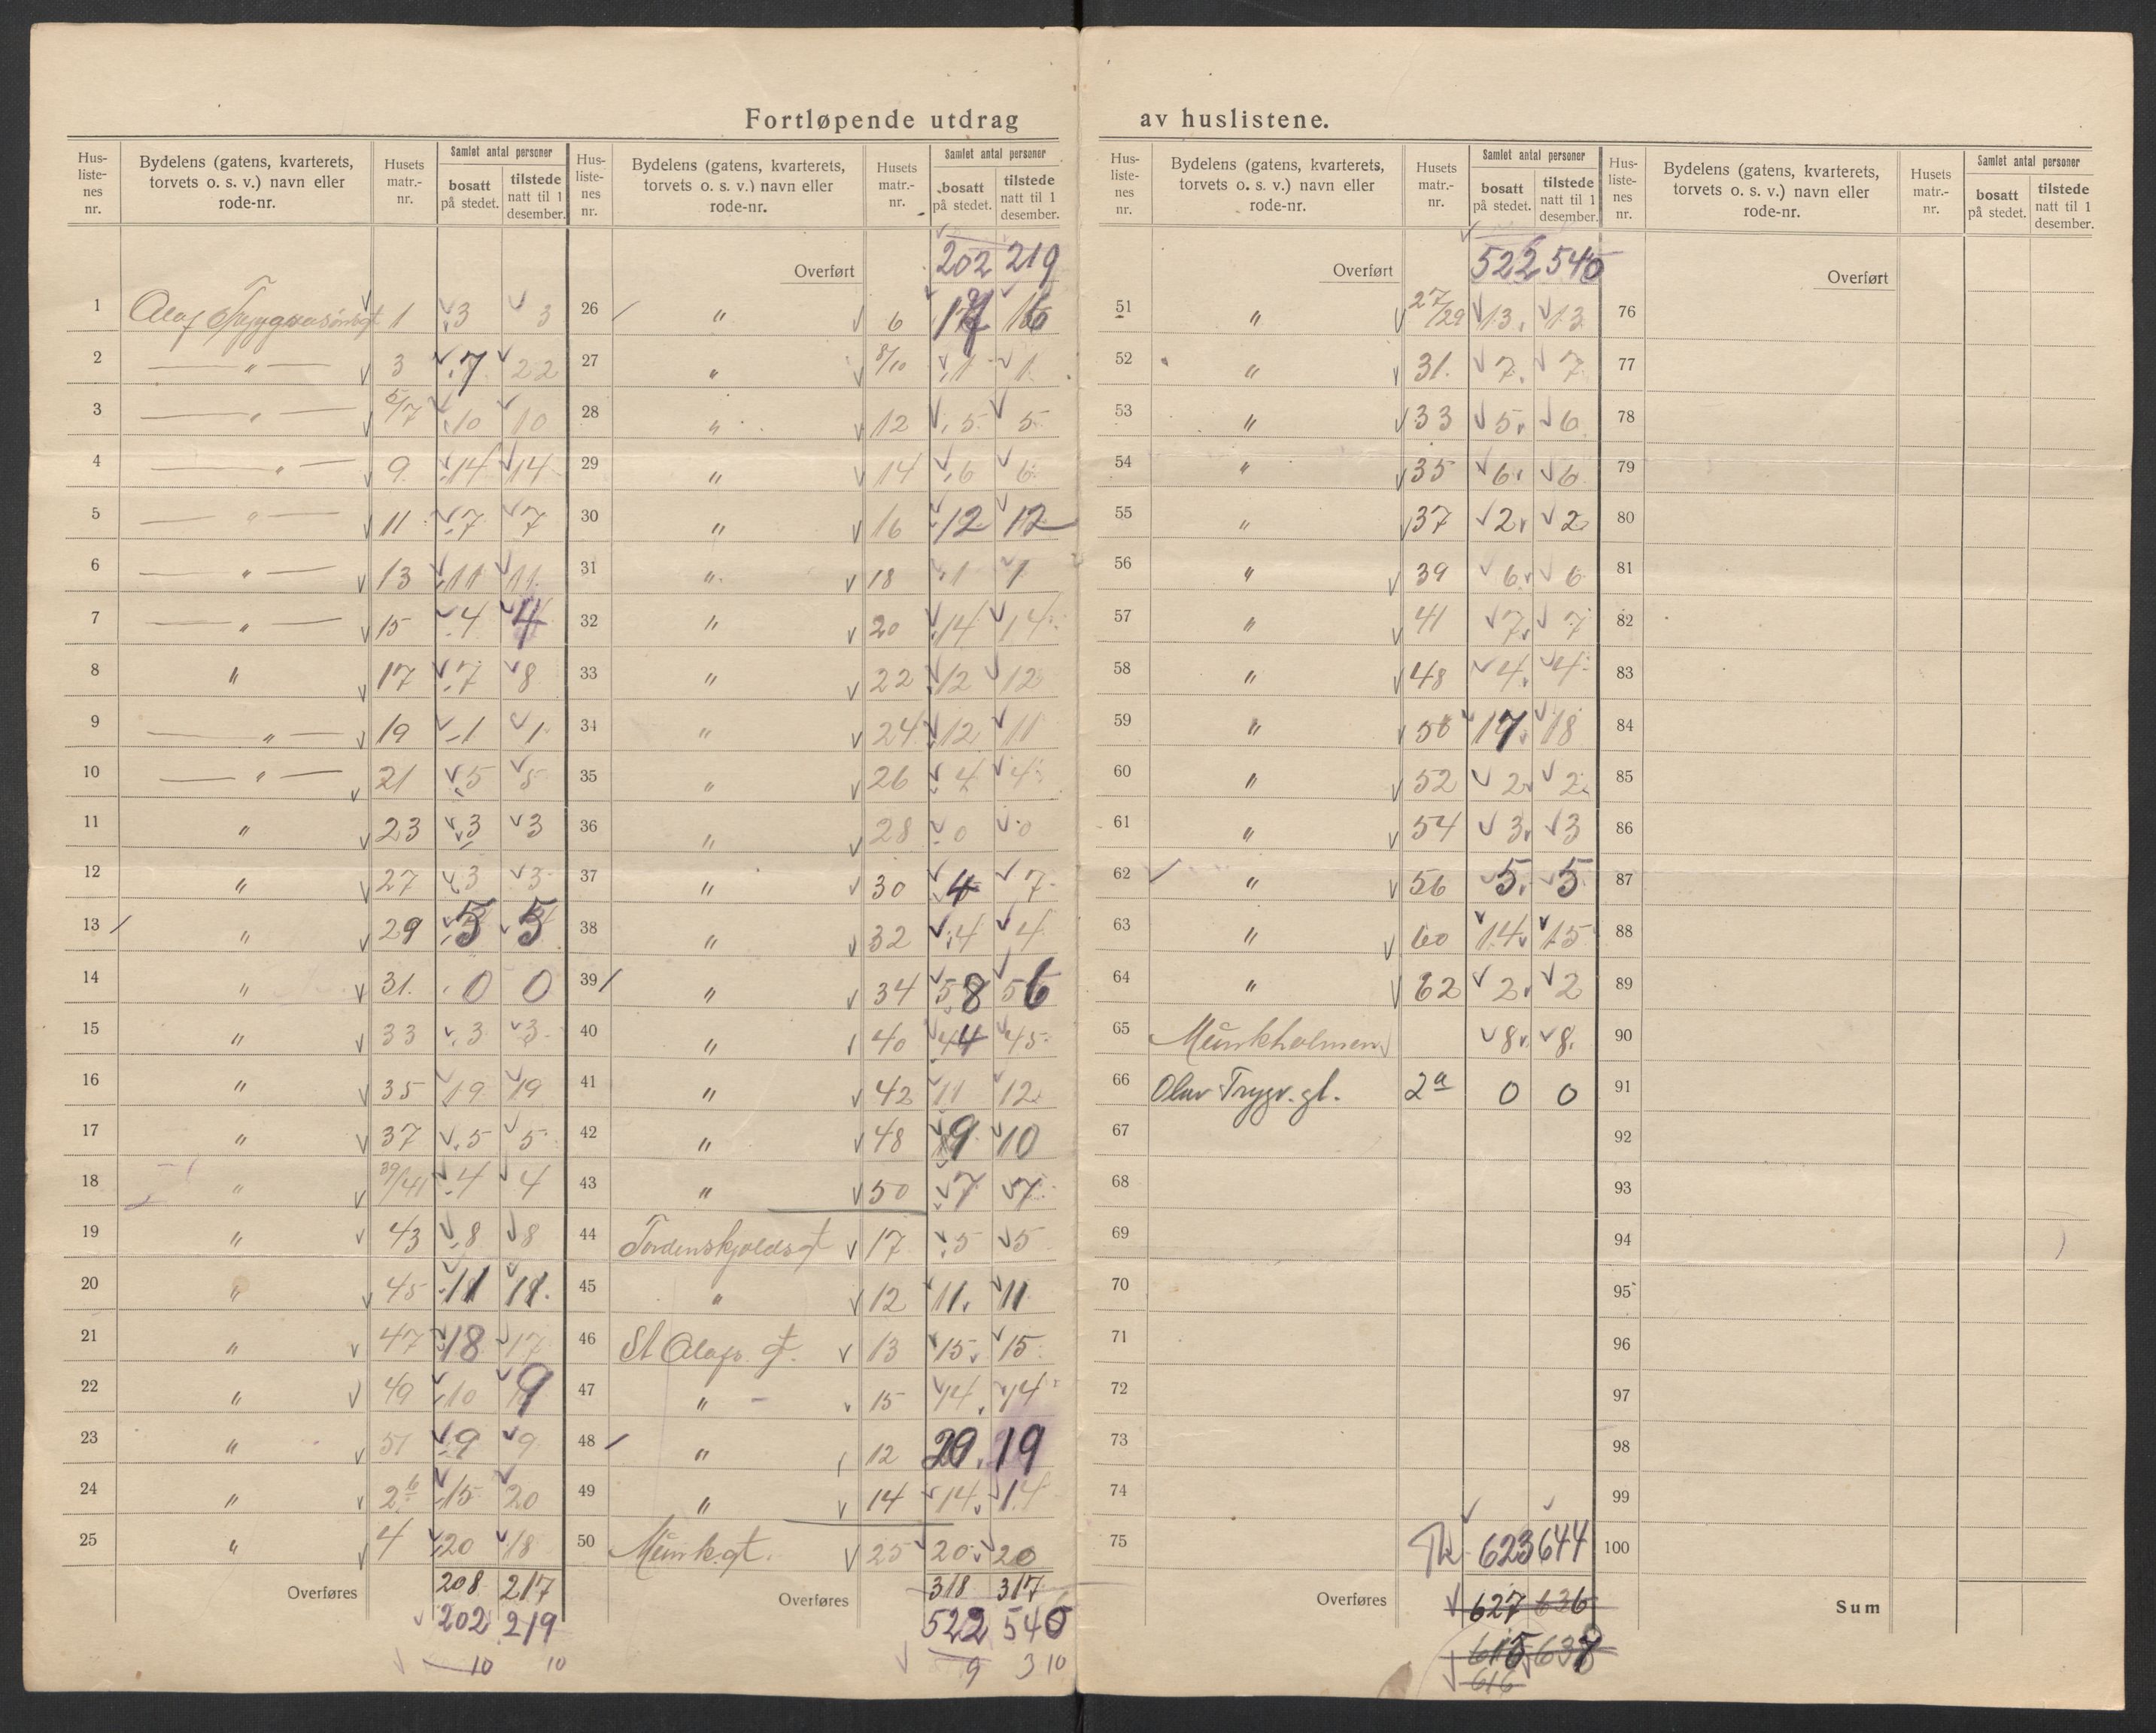 Fortløpende utdrag av huslistene.
Hus-listenes nr. | Bydelens (gatens, kvarterets, torvets o. s. v.) navn eller rode-nr. | Husets matr.-nr. | Samlet antal personer | bosatt på stedet. | tilstede natt til 1 desember.
1 Olaf Tryggvasønsgt 1 3 3
2 — " — 3 7 22
3 — " — 5/7 10 10
4 — " — 9 14 14
5 — " — 11 7 7
6 — " — 13 11 11
7 — " — 15 4 4
8 " 17 7 8
9 — " — 19 1 1
10 — " — 21 5 5
11 " 23 3 3
12 " 27 3 3
13 " 29 5 5
14 " 31. 0 0
15 " 33 3 3
16 " 35 19 19
17 " 37 5 5
18 " 39/41 4 4
19 " 43 8 8
20 " 45 11 18.
21 " 47 18 17
22 " 49 10 9
23 " 51 9 9
24 " 2b 15 20
25 " 4 20 18
Overføres 208 217
202 219
10 10
Hus-listenes nr. | Bydelens (gatens, kvarterets, torvets o. s. v.) navn eller rode-nr. | Husets matr.-nr. | Samlet antal personer | bosatt på stedet. | tilstede natt til 1 desember.
Overført 202 219
26 " 6 17 16
27 " 8/10 1 1
28 " 12 5 5
29 " 14 6 6
30 " 16 12 12
31 " 18 1 1
32 " 20 14 14
33 " 22 12 12
34 " 24 12 11
35 " 26 4 4
36 " 28 0 0
37 " 30 4 7
38 " 32 4 4
39 " 34 58 56
40 " 40 44 45
41 " 42 11 12
42 " 48 9 10
43 " 50 7 7
44 Tordenskjoldsgt 17 5 5
45 " 12 11 11
46 St Olafs. gt. 13 15 15
47 " 15 14 14
48 " 12 20 19
49 " 14 14 14
50 Munk.gt. 25 20 20
Overføres 318 317
522 540
9 3 10
Hus-listenes nr. | Bydelens (gatens, kvarterets, torvets o. s. v.) navn eller rode-nr. | Husets matr.-nr. | Samlet antal personer | bosatt på stedet. | tilstede natt til 1 desember.
Overført 522 540
51 " 27/29 13 13
52 " 31. 7 7
53 " 33 5 6
54 " 35 6 6
55 " 37 2 2
56 " 39 6 6
57 " 41 7 7
58 " 48 4 4
59 " 50 17 18
60 " 52 2 2
61 " 54 3 3
62 " 56 5 5
63 " 60 14 15
64 " 62 2 2
65 Munkholmen 8 8
66 Olav Trygv. gt. 2a 0 0
67
68
69
70
71
72
73
74
75 623 644
Overføres 627 636
615 637
616
Hus-listenes nr. | Bydelens (gatens, kvarterets, torvets o. s. v.) navn eller rode-nr. | Husets matr.-nr. | Samlet antal personer | bosatt på stedet. | tilstede natt til 1 desember.
Overført
76
77
78
79
80
81
82
83
84
85
86
87
88
89
90
91
92
93
94
95
96
97
98
99
100
Sum